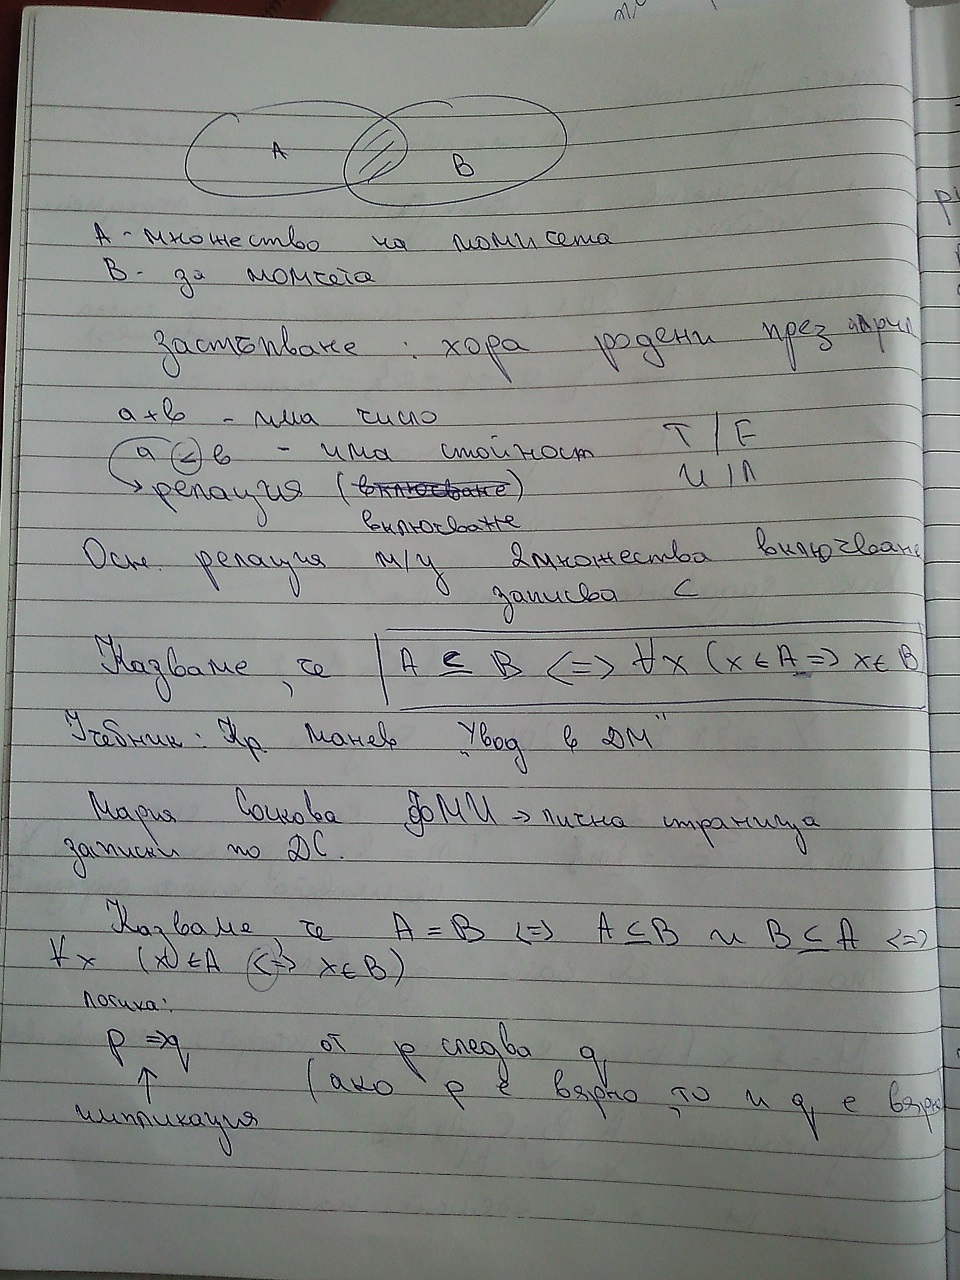 A B
A - множество на момичета
B - за момчета
застъпване : хора родени през април
a+b - има число
a < b - има стойност T / F
релация (включване) И / Л
включване
Осн. релация м/у 2 множества включване
записва ⊂
Казваме, че A ⊆ B <=> ∀x (x ∈ A => x ∈ B
Учебник: Кр. Манев "Увод в ДМ"
Мария Соскова ФМИ -> лична страница
записки по ДС.
Казваме че A = B <=> A ⊆ B и B ⊆ A <=>
∀x (x ∈ A <=> x ∈ B)
логика:
p => q от p следва q
(ако p е вярно, то и q е вярно
↑
импликация